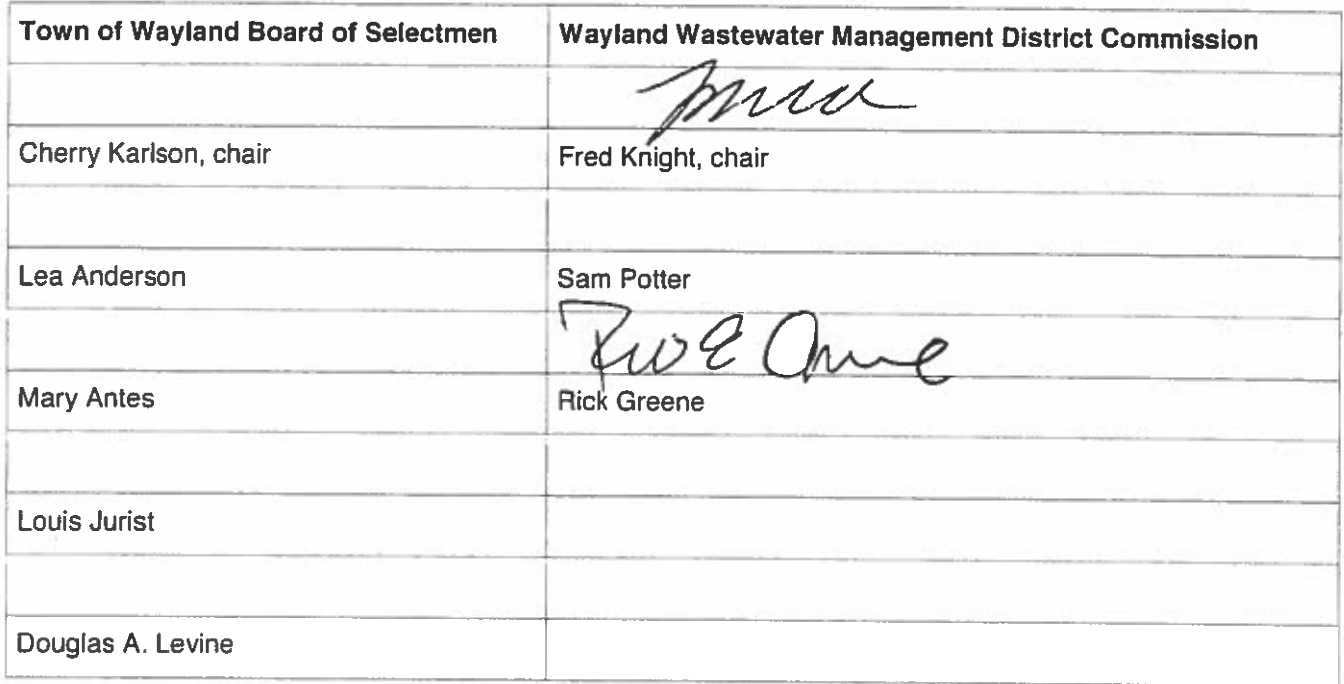 Town of Wayland Board of Selectmen Wayland Wastewater Management District Commission
Cherry Karlson, chair Fred Knight, chair
Lea Anderson Sam Potter
Mary Antes Rick Greene
Louis Jurist
Douglas A. Levine